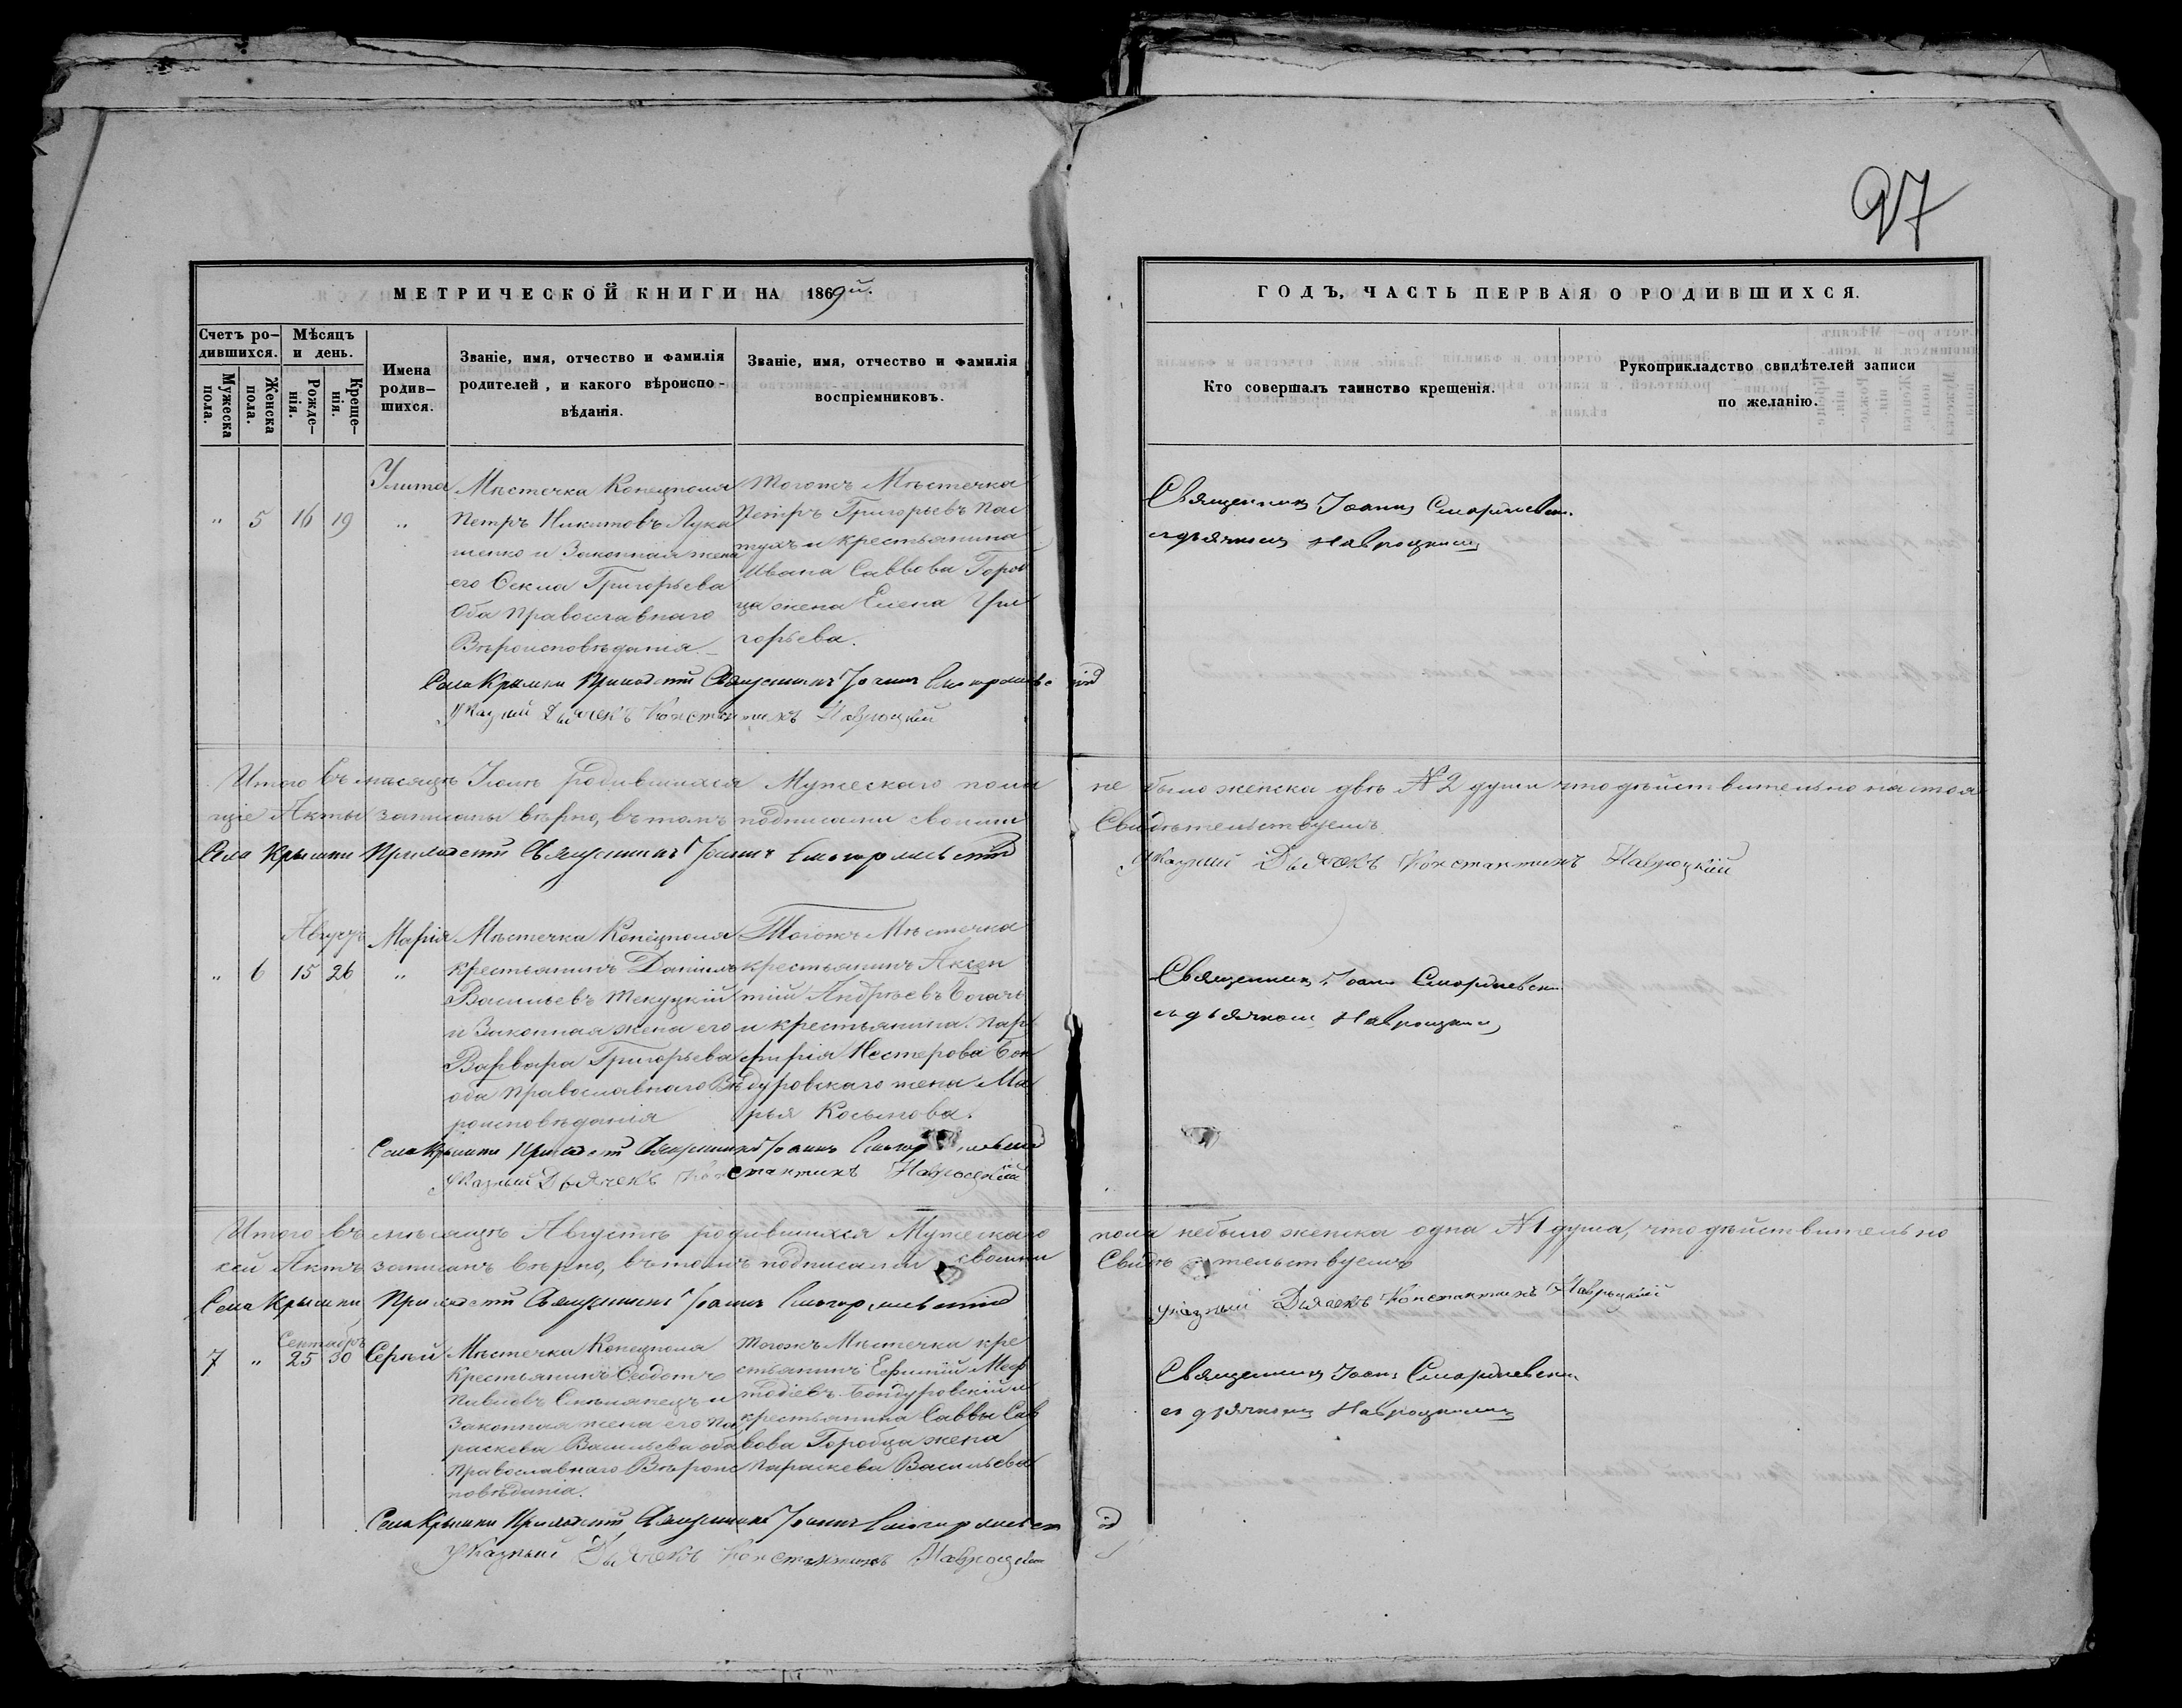 97
МЕТРИЧЕСКОЙ КНИГИ НА 1869й.
Счетъ родившихся.
Мужеска пола.
Женска пола.
Мѣсяцъ и день.
Рожденія.
Крещенія.
Имена родившихся.
Званіе, имя, отчество и фамилія
родителей, и какого вѣроиспо-
вѣданія.
Званіе, имя, отчество и фамилія
воспріемниковъ.
ГОДЪ, ЧАСТЬ ПЕРВАЯ О РОДИВШИХСЯ.
Кто совершалъ таинство крещенія.
Рукоприкладство свидѣтелей записи
по желанію.
" 5 16 19 "
Мѣстечка Конецполя
Петръ Никитовъ Лука
шенко и Законная жена
его Григорьева
Оба Православнаго
Вѣроисповѣданія.
Тогожъ Мѣстечка
Петръ Григорьевъ Пас
тухъ и крестьянина
Ивана Саввова Горов
ца жена Елена Гри
горьева.
Священникъ Іоаннъ
съ дьячкомъ Навроцкимъ
Села Крымки Приходскій Священникъ Іоаннъ
Указный Дьячекъ Константинъ Навроцкій
Итого въ мѣсяцѣ родившихся Мужескаго пола не было женска двѣ №2 души что дѣйствительно настоя
щіе Акты записаны вѣрно, въ томъ подписами своими Свидѣтельствуемъ
Села Крымки Приходскій Священникъ Іоаннъ
Указный Дьячекъ Константинъ Навроцкій
Августъ
Марія
" 6 15 26 "
Мѣстечка Конецполя
крестьянинъ Даніилъ
Васильевъ Текуцкій
и Законная жена его
Варвара Григорьева
оба Православнаго Вѣ
роисповѣданія
Тогожъ Мѣстечка
крестьянинъ Аксен
тій Андрѣевъ Богачь
и крестьянина Пор
фирія Нестерова Бон
дуровскаго жена Ма
рья Косьмова.
Священникъ Іоаннъ
съ дьячкомъ Навроцкимъ
Села Крымки Приходскій Священникъ Іоаннъ
Указный Дьячекъ Константинъ Навроцкій
Итого въ мѣсяцѣ Августѣ родившихся Мужескаго пола небыло женска одна №1 душа, что дѣйствительно
сей Актъ записанъ вѣрно, въ томъ подписами своими Свидѣтельствуемъ
Села Крымки Приходскій Священникъ Іоаннъ
Указный Дьячекъ Константинъ Навроцкій
Сентябрь
7 " 25 30 Сергѣй
Мѣстечка Конецполя
Крестьянинъ Ѳеодотъ
и
Законная жена его Па
раскева Васильева оба
Православнаго Вѣроис
повѣданія.
тогожъ Мѣстечка кре
стьянинъ Ефимій Меф
одіевъ Бондуровскій и
крестьянина Саввы Сав
вова Горобца жена
Параскева Васильева
Священникъ Іоаннъ
съ дьячкомъ Навроцкимъ
Села Крымки Приходскій Священникъ Іоаннъ
Указный Дьячекъ Константинъ Навроцкій